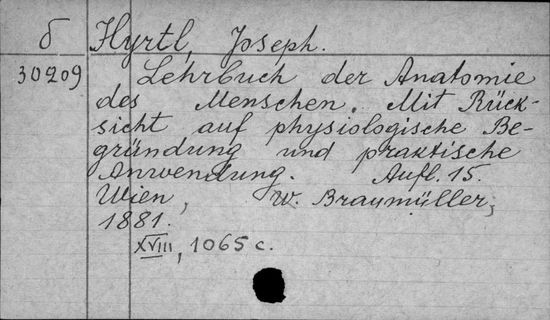 б Hyrtl, Joseph.
30209 Lehrbuch der Anatomie
des Menschen. Mit Rück-
sicht auf physiologische Be-
gründung und praktische
Anwendung. Aufl. 15.
Wien, W. Braumüller,
1881.
XVIII, 1065 c.